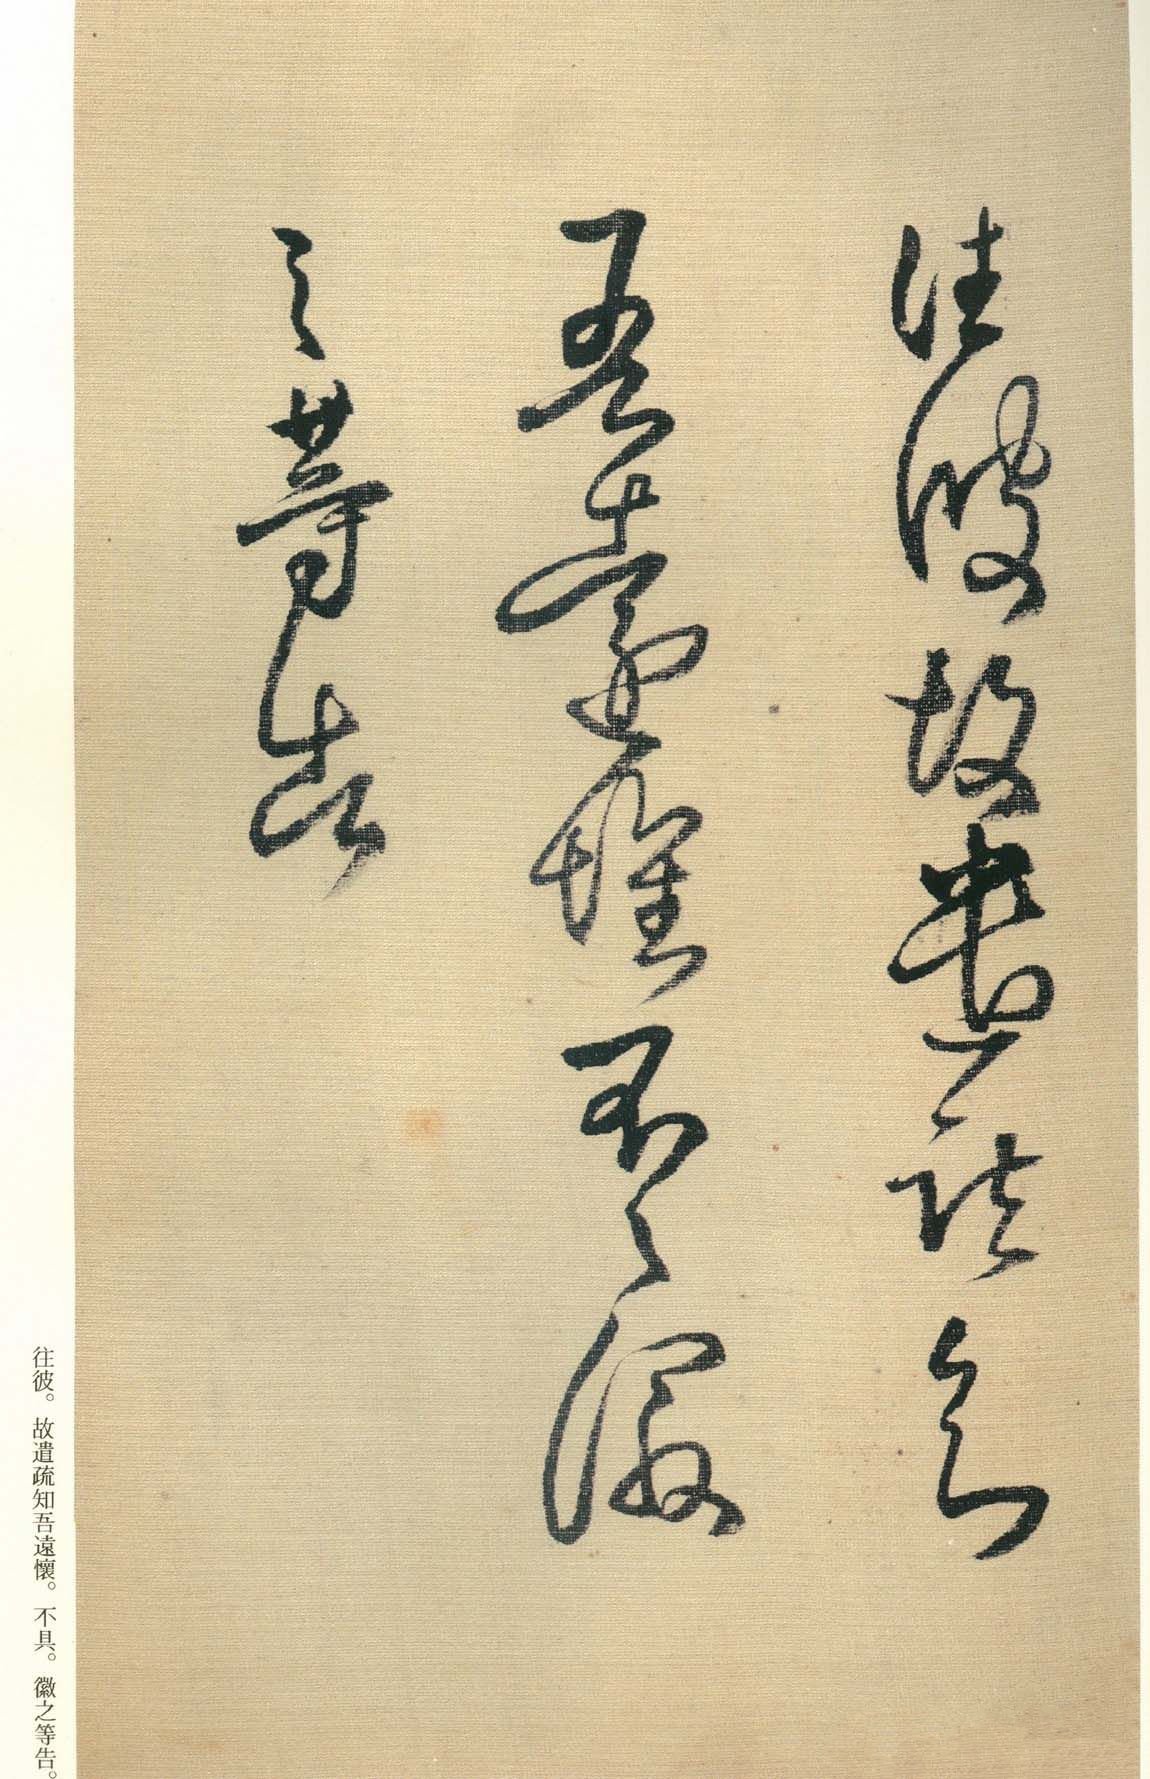 往彼故遣疏知
吾遠懷不具徽
之等告
往彼。故遣疏知吾遠懷。不具。徽之等告。